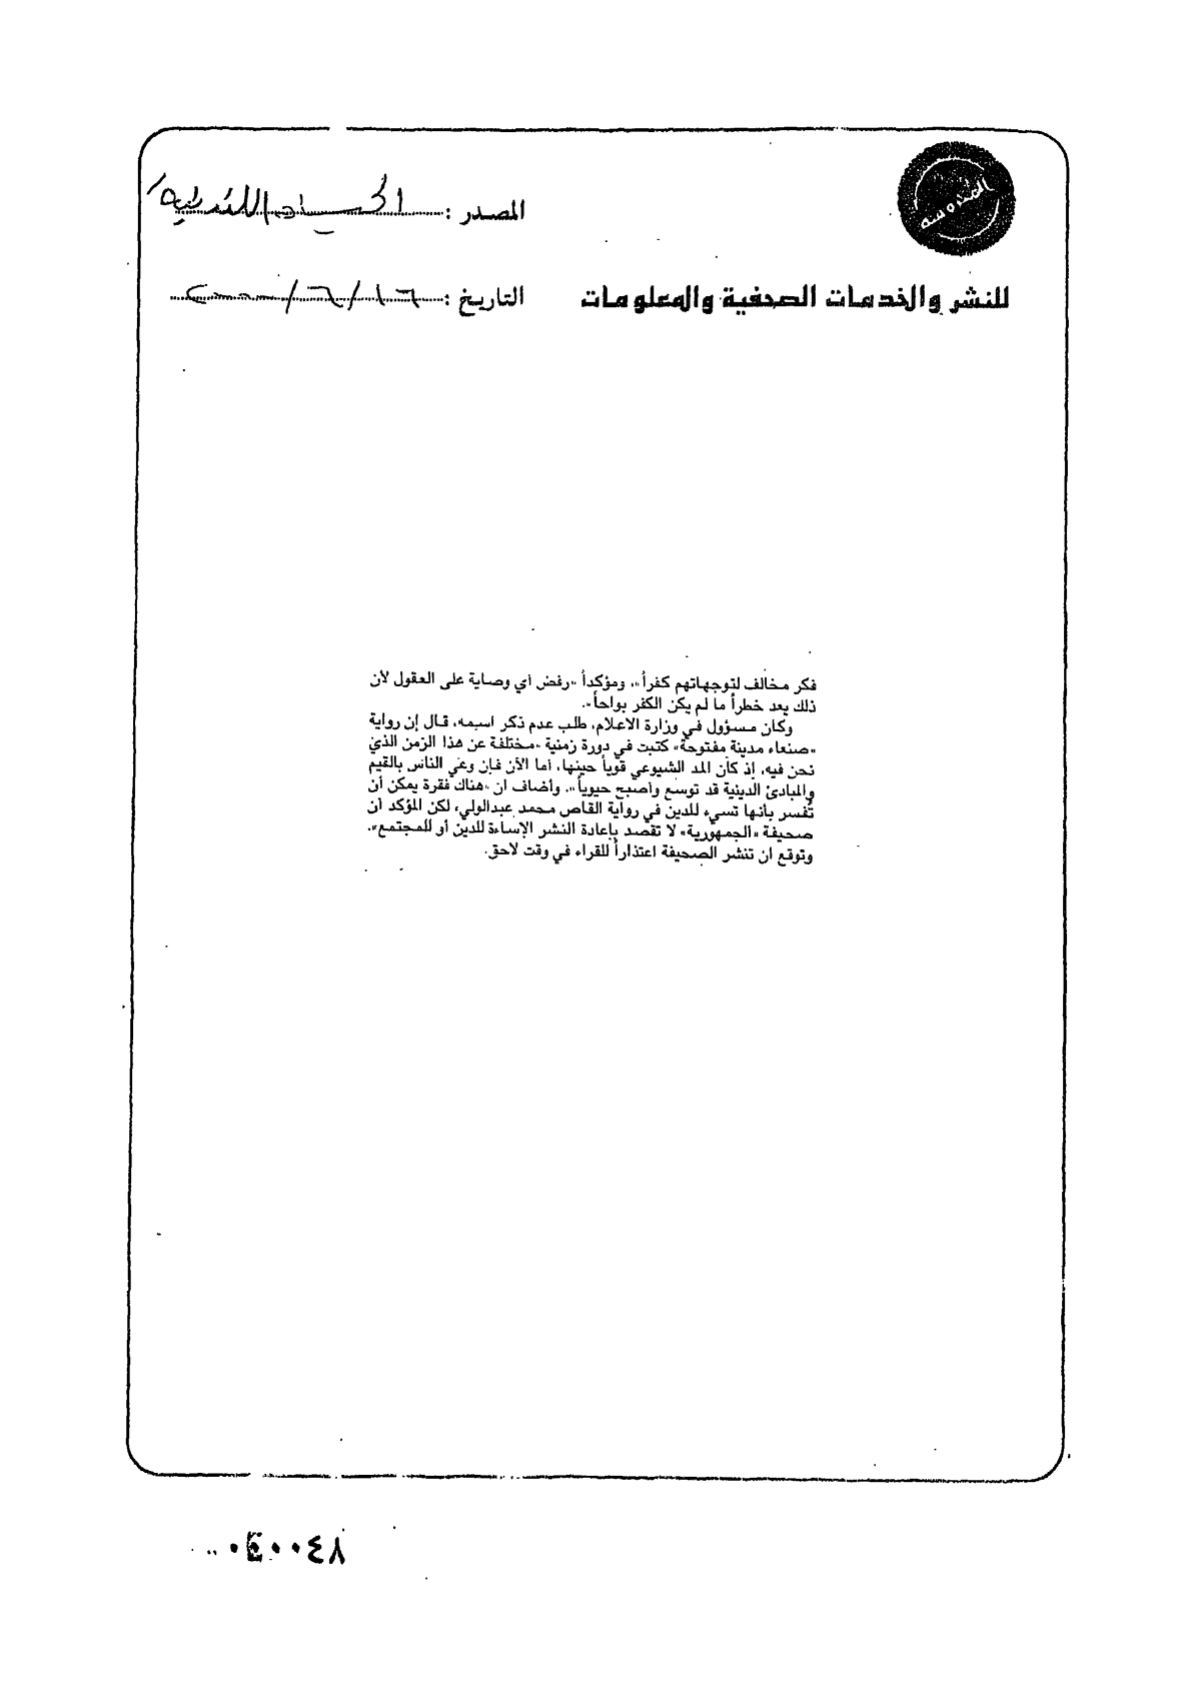 المصدر : الحياة اللندنية
للنشر والخدمات الصحفية والمعلومات
التاريخ : ١٦/٦/٢٠٠٠
فكر مخالف لتوجهاتهم كفراً»، ومؤكداً «رفض أي وصاية على العقول لأن
ذلك يعد خطراً ما لم يكن الكفر بواحاً».
وكان مسؤول في وزارة الاعلام، طلب عدم ذكر اسمه، قال إن رواية
«صنعاء مدينة مفتوحة» كتبت في دورة زمنية «مختلفة عن هذا الزمن الذي
نحن فيه، إذ كان المد الشيوعي قوياً حينها، أما الآن فإن وعي الناس بالقيم
والمبادئ الدينية قد توسع وأصبح حيوياً». وأضاف ان «هناك فقرة يمكن أن
تُفسر بأنها تسيء للدين في رواية القاص محمد عبدالولي، لكن المؤكد أن
صحيفة «الجمهورية» لا تقصد بإعادة النشر الإساءة للدين أو للمجتمع».
وتوقع ان تنشر الصحيفة اعتذاراً للقراء في وقت لاحق.